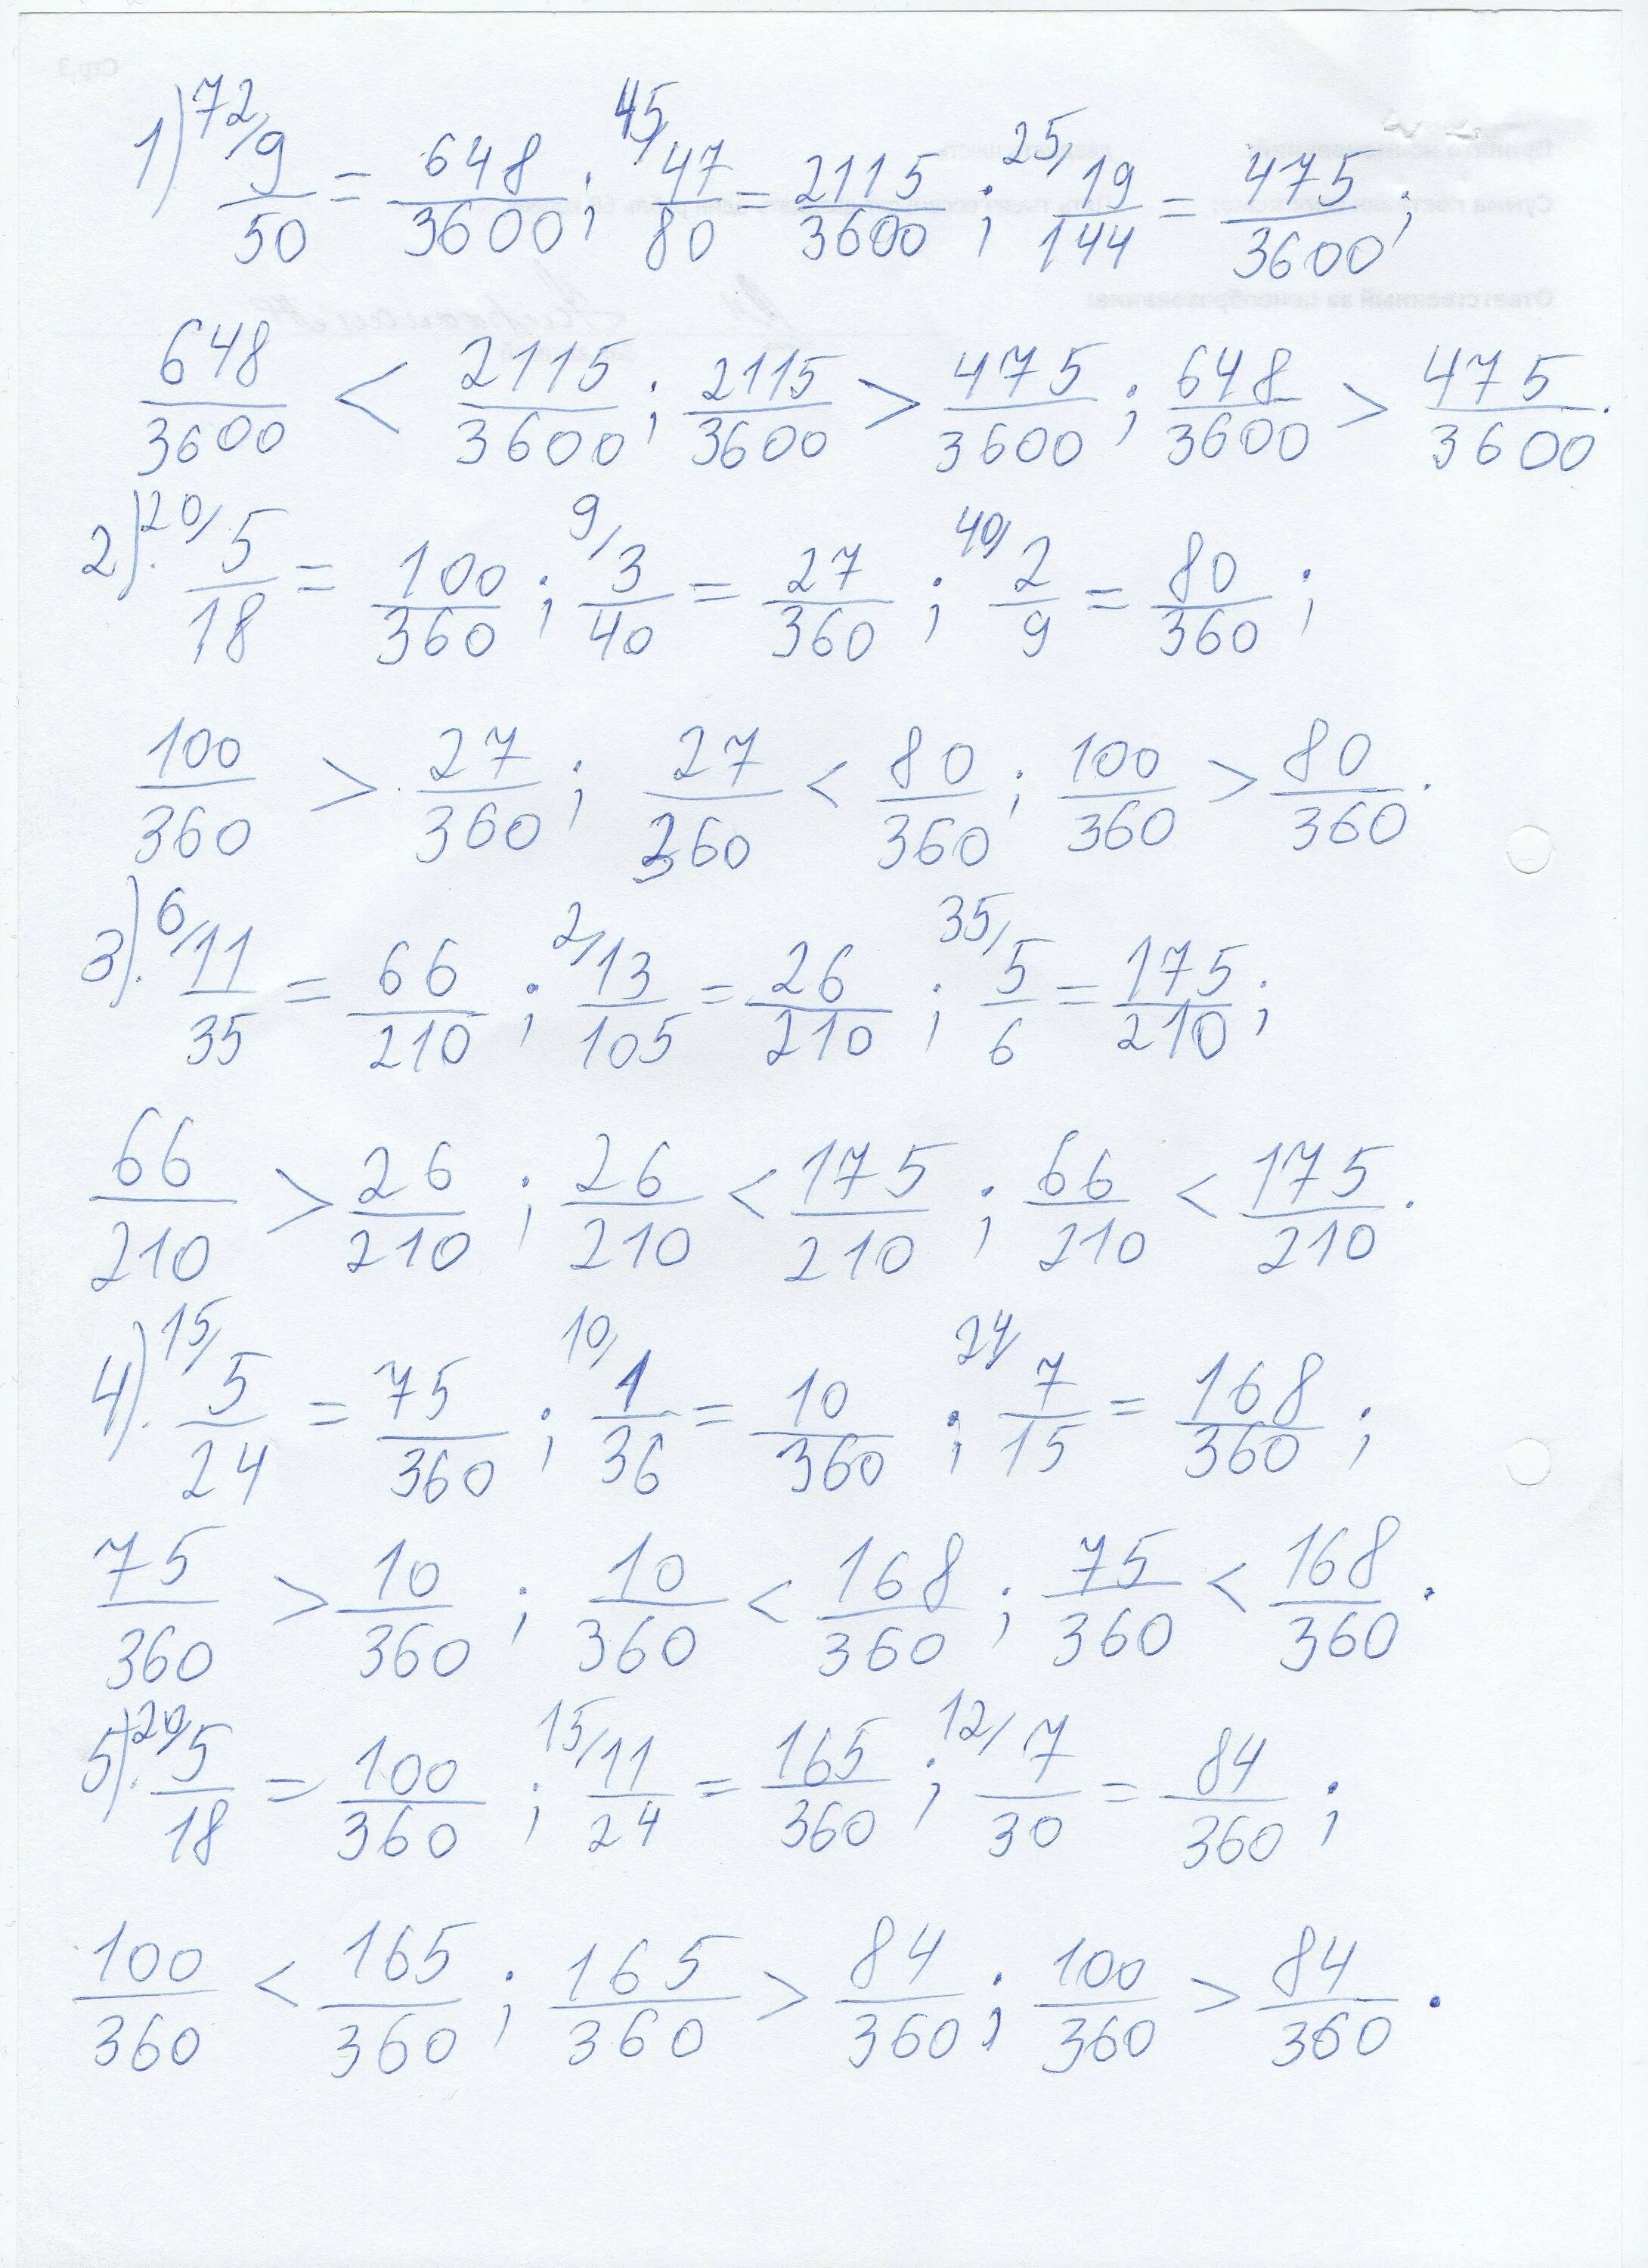 1) 72/ 9/50 = 648/3600 ; 45/ 47/80 = 2115/3600 ; 25/ 19/144 = 475/3600 ;
648/3600 < 2115/3600 ; 2115/3600 > 475/3600 ; 648/3600 > 475/3600 .
2). 20/ 5/18 = 100/360 ; 9/ 3/40 = 27/360 ; 40/ 2/9 = 80/360 ;
100/360 > 27/360 ; 27/360 < 80/360 ; 100/360 > 80/360 .
3). 6/ 11/35 = 66/210 ; 2/ 13/105 = 26/210 ; 35/ 5/6 = 175/210 ;
66/210 > 26/210 ; 26/210 < 175/210 ; 66/210 < 175/210 .
4). 15/ 5/24 = 75/360 ; 10/ 1/36 = 10/360 ; 24/ 7/15 = 168/360 ;
75/360 > 10/360 ; 10/360 < 168/360 ; 75/360 < 168/360 .
5). 20/ 5/18 = 100/360 ; 15/ 11/24 = 165/360 ; 12/ 7/30 = 84/360 ;
100/360 < 165/360 ; 165/360 > 84/360 ; 100/360 > 84/360 .